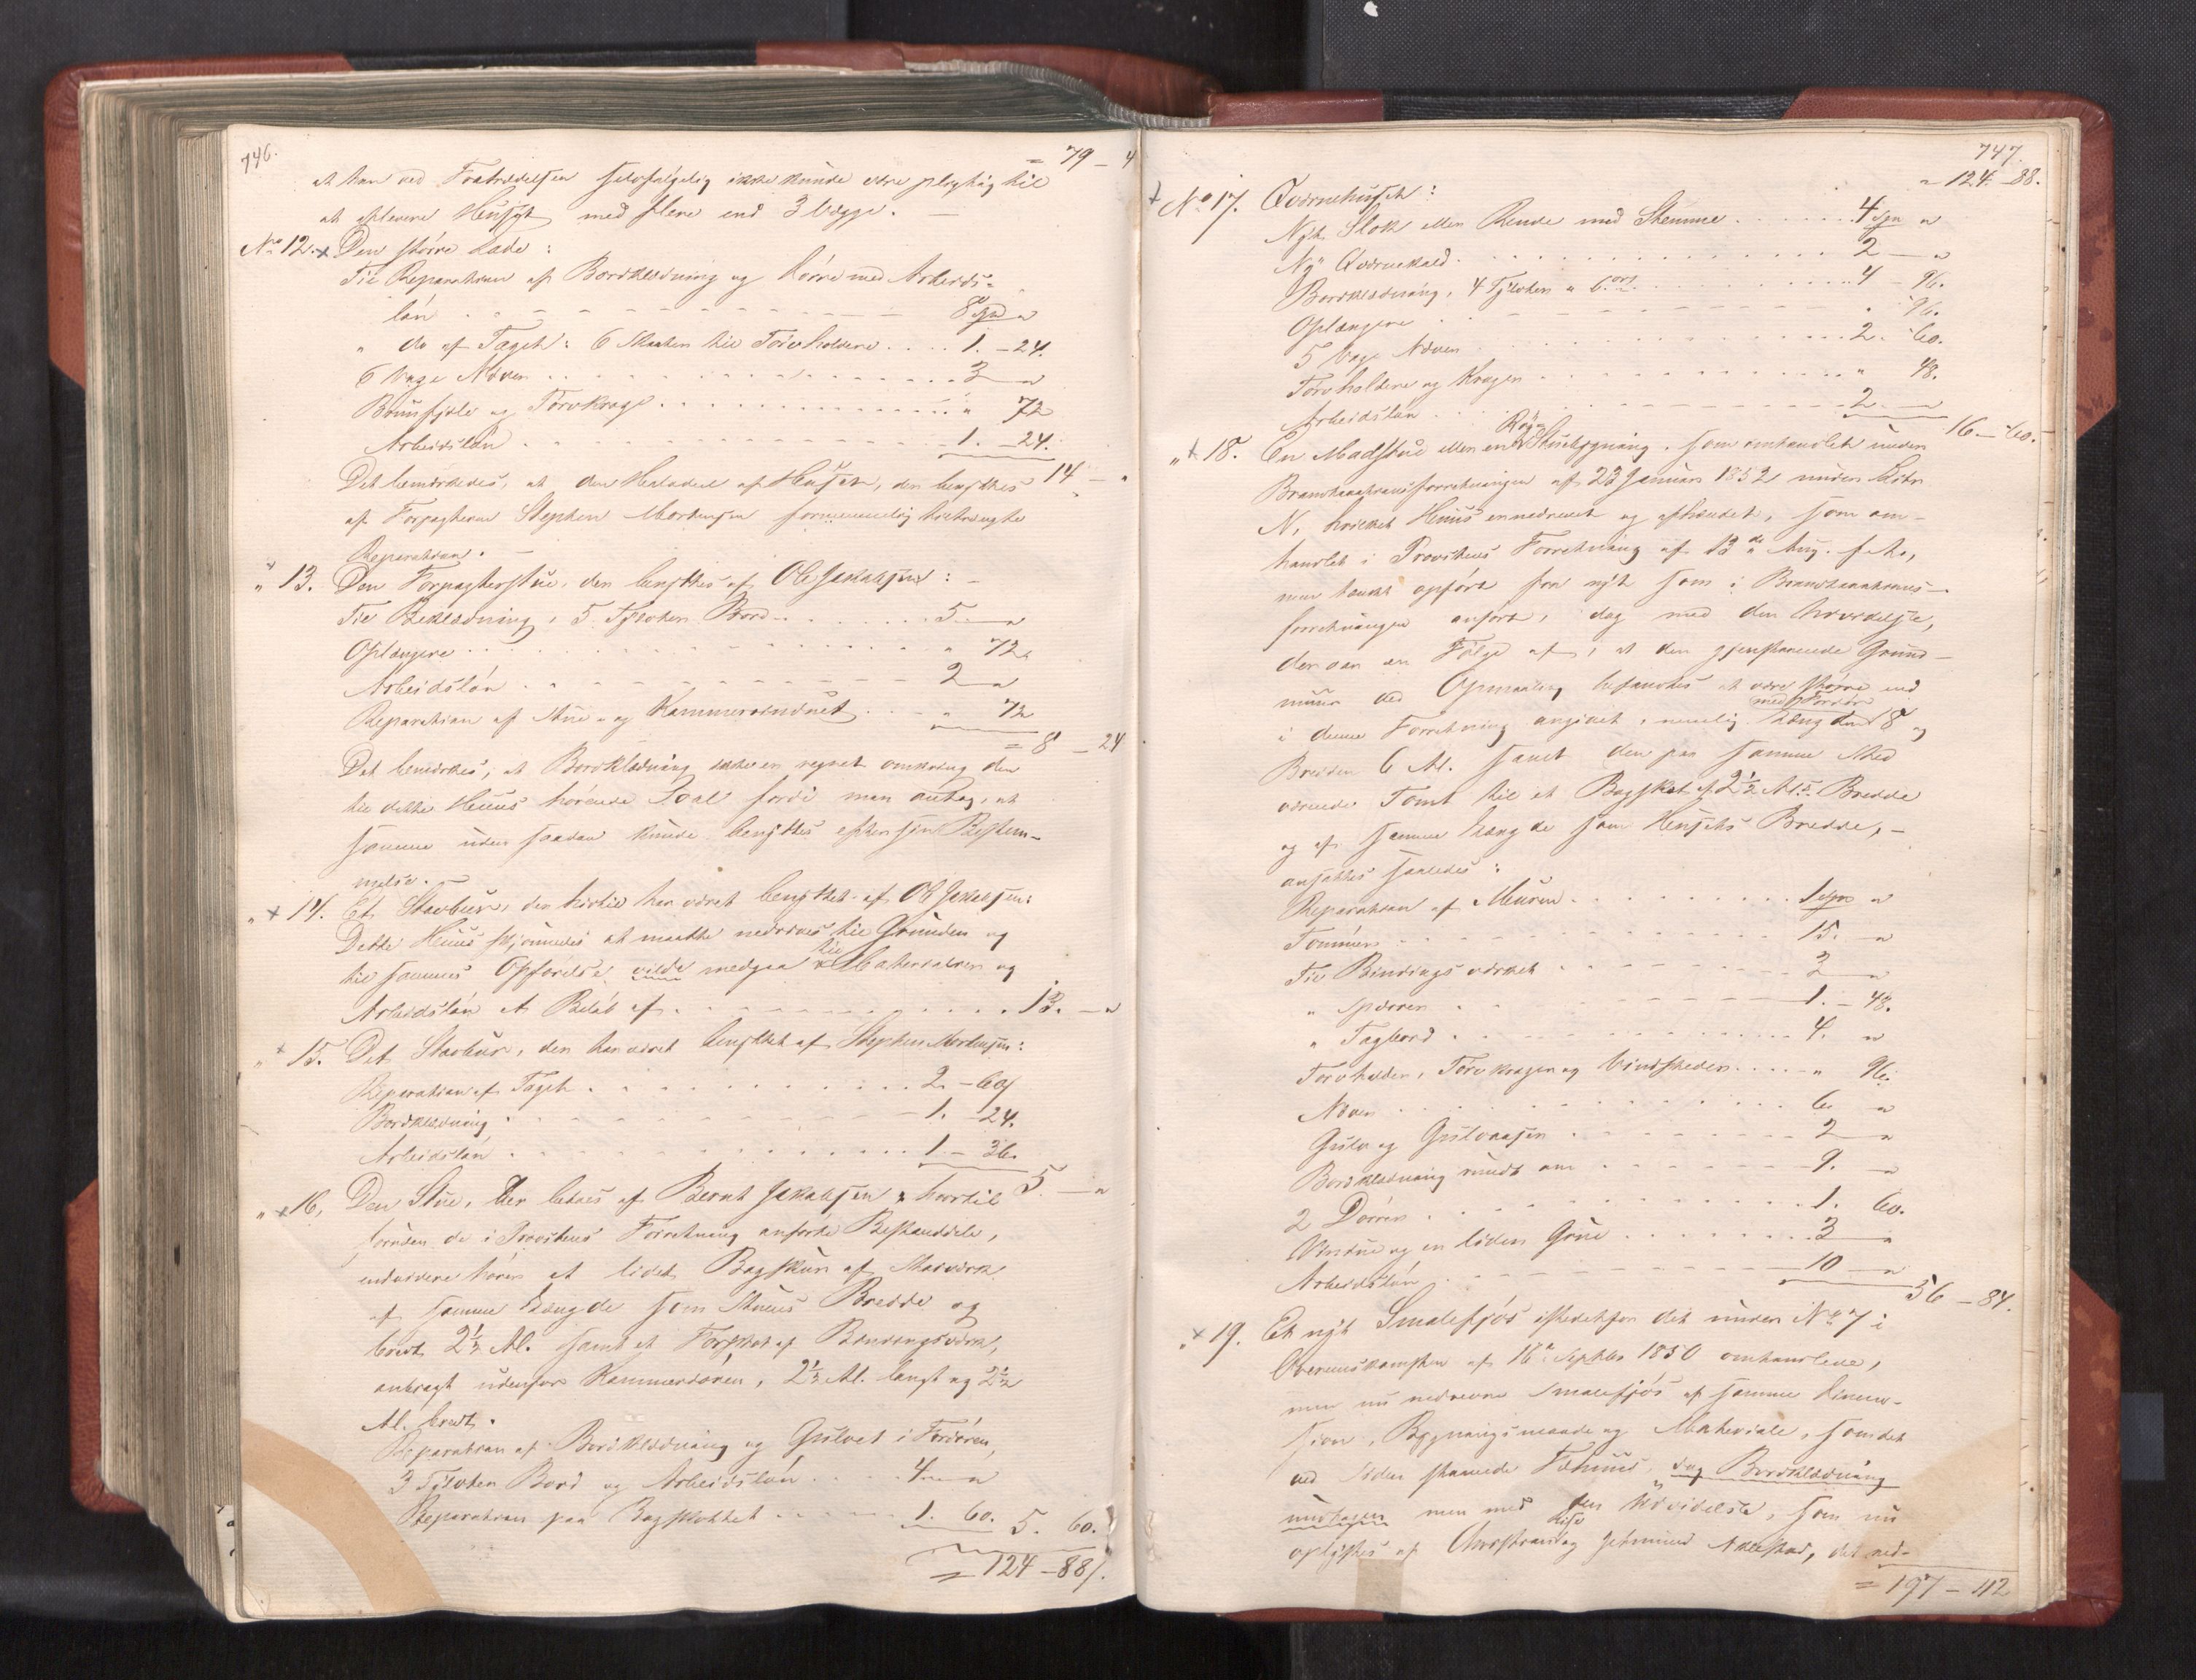 746.
= 79 - 4
at han ved Fratrædelsen selvfølgelig ikke kunde være pligtig til
at aflevere Huset med flere end 3 Vægge. —
No 12. x Den større Lade:
Til Reparation af Bordklædning og Dörre med Arbeids-
lön . . . 8 Spd "
" do af Taget: 6 Stokker til Torvholdere . . . . 1. - 24.
6 Voge Næver . . . 3 "
Bruusfjæle og Torvkroge . . . " 72
Arbeidslön . . . 1. - 24.
14 - "
Det bemærkedes, at den Halvdeel af Huset, der benyttes
af Forpagteren Stephen Mortensen fornemmelig tiltrængte
Reparation. —
" 13. Den Forpagterstue, der benyttes af Ole Jakobsen: -
Til Beklædning, 5 Tylvter Bord . . . 5. — "
Oplængere . . . " 72.
Arbeidslön . . . 2 — "
Reparation af Stue- og Kammervinduet . . . " 72
= 8 - 24
Det bemærkes, at Bordklædning ikke er regnet omkring den
til dette Huus hörende Sval fordi man antog, at
samme uden saadan kunde benyttes efter sin Bestem-
melse. —
" x 14. Et Stavbuur, der hidtil har været benyttet af Ole Jakobsen:
Dette Huus skjönnedes at maatte nedrives til Grunden og
til sammes Opförelse vilde medgaa til Materialier og
Arbeidslön et Belöb af . . . 13. — "
" x 15. Det Stavbuur, der har været benyttet af Stephen Mortensen:
Reparation af Taget . . . 2. - 60
Bordklædning . . . 1. - 24.
Arbeidslön . . . 1. - 36.
5. — "
" x 16. Den Stue, der beboes af Bernt Jakobsen & hvortil
foruden de i Provstens Forretning anförte Bestanddele,
endvidere hörer et lidet Bagskuur af Stavværk
af samme Længde som Stuens Bredde og
bredt 2½ Al. samt et Forskot af Bindingsværk,
anbragt udenfor Kammerdören, 2½ Al. langt og 2½
Al. bredt.
Reparation af Bordklædning og Gulvet i Fordören,
3 Tylvter Bord og Arbeidslön . . . 4. — "
Reparation paa Bagskottet . . . 1. 60. 5. 60.
= 124 - 88.
747.
= 124 - 88.
x No 17. Qværnehuset:
Nyt Stok eller Rende med Stemme . . . 4 Spd "
Ny Qværnekald . . . 2 — "
Bordklædning, 4 Tylvter a 6 ort . . . 4 - 96.
Oplængere . . . " 96.
5 Voge Næver . . . 2. - 60.
Torvholdere og Kroger . . . " 48.
Arbeidslön . . . 2. — "
16. - 60.
" x 18. En Madstue eller en Rög-Stuebygning, som omhandlet under
Brandtaxationsforretningen af 23 Januar 1832 under Litr
N, hvilket Huus er nedrevet og afhændet, som om-
handlet i Provstens Forretning af 13de Aug. f. A.,
men tænkt opfört fra nyt som i Brandtaxations-
forretningen anfört, dog med den Udvidelse,
der var en Fölge af, at den gjenstaaende Grund-
muur ved Opmaaling befandtes at være större end
i denne Forretning angivet, nemlig Længden med Fordör 8 og
Bredden 6 Al. samt den paa samme Sted
værende Tomt til et Bagskot af 2½ Al.s Bredde
og af samme Længde som Husets Bredde, -
ansattes saaledes:
Reparation af Muren . . . 1 Spd "
Tömmer . . . 15. — "
Til Bindingsværket . . . 2 — "
" Sperrer . . . 1. - 48.
" Tagbord . . . 4. "
Torvholder, Torvkroger og Vindskeder . . . " 96.
Næver . . . 6 "
Gulv og Gulvaaser . . . 2 — "
Bordklædning rundt om . . . 9. — "
2 Dörre . . . 1. 60.
Vindue og en liden Grue . . . 3 "
Arbeidslön . . . 10 — "
56 - 84.
" x 19. Et nyt Smalefjös istedetfor det under No 7 i
Overenskomsten af 16de Septbr 1850 omhandlede,
men nu nedrevne Smalefjös af samme Dimen-
sion, Bygningsmaade og Materiale, som det
ved Siden staaende Fæhuus, dog Bordklædning
undtagen men med den Udvidelse, som nu
oplystes af Christian og Gudmund Akerstad, det ned-
= 197 - 112